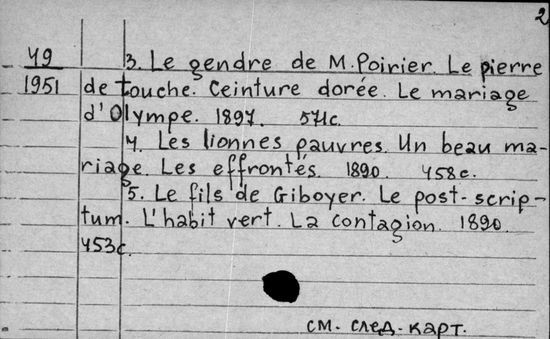 2
49 3. Le gendre de M. Poirier. Le pierre
1951 de touche. Ceinture dorée. Le mariage
d'Olympe. 1897. 571с.
4. Les lionnes pauvres. Un beau ma-
riage. Les effrontés. 1890. 458с.
5. Le fils de Giboyer. Le post-scrip-
tum. L'habit vert. La contagion. 1890.
453с.
см. след. карт.